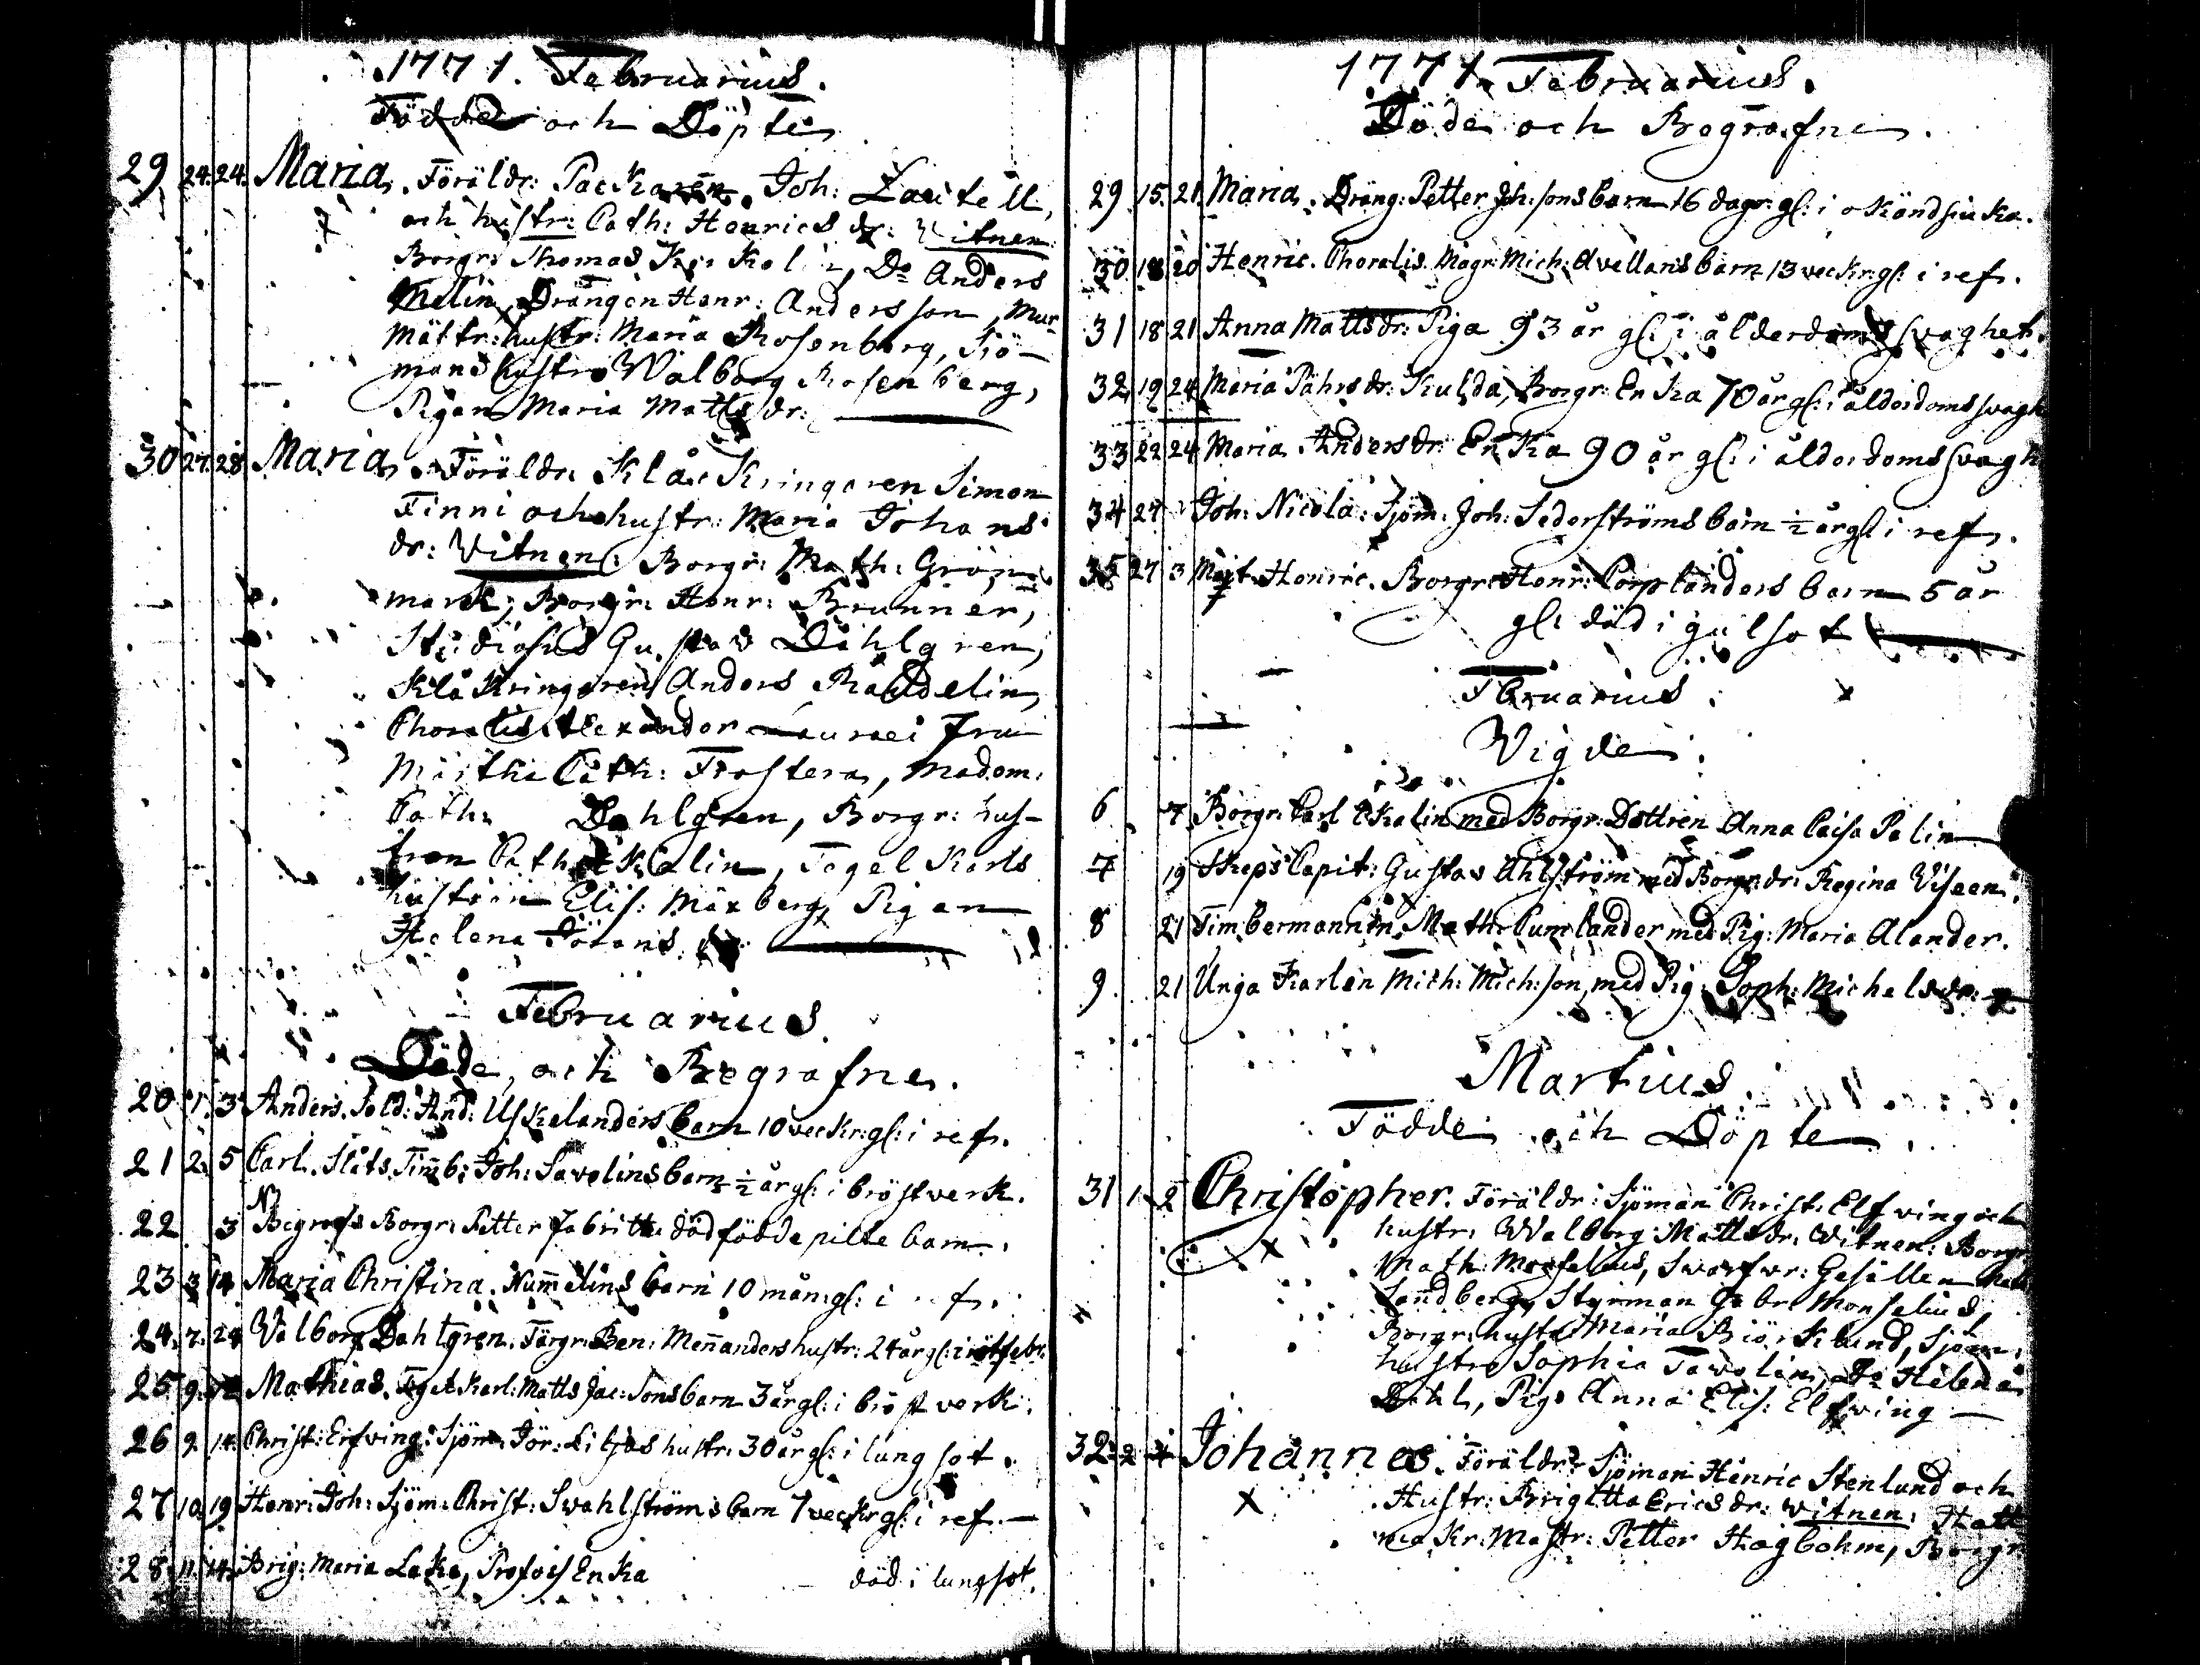 1771. Februarius.
Födde och Döpte
29 24. 24. Maria. Föräldr: Packaren Joh: Lautell,
och hustr: Cath: Henricsdr: Witnen:
Borgr: Thomas Kiskolin, Do Anders
Melin, Drängen Henr: Andersson, Mur
mästr: hustr: Maria Rosenberg, Siö-
mans hustr: Walborg Rosenberg,
Pigan Maria Mattsdr:
30 27. 28 Maria. Föräldr: Klåckringaren Simon
Finni och hustr: Maria Johans
dr: Witnen: Borgr: Math: Grön
mark, Borgr: Henr: Brunner,
Studiosus Gustav Dahlgren,
Klåckringaren Anders Randelin,
Choralis Alexander Lauraei Fru
Märtha Cath: Frostera, Madom.
Cath: Dahlgren, Borgr: hus-
trun Cath: Ekalin, Tegel Karls
hustrun Elis: Maxberg, Pigan
Helena Jörans dr:
Februarius
Döde, och Begrafne.
20 1. 3 Anders. Sold: And: Uskelanders barn 10 veckr: gl: i ref.
21 2. 5 Carl. Slåts Timb: Joh: Savolins barn ½ år gl: i bröstverk.
NB
22 3 Begrofs Borgr: Petter Fabritii dödfödde pilte barn.
23 3 14 Maria Christina. Num̄elins barn 10 mån: gl: i ref.
24. 7. 24 Valborg Dahlgren. Färgr: Ben: Men̄anders hustr: 24 år gl: i rötfebr:
25 9. Mathias. Tegel Karl: Matts Jac: Sons barn 3 år gl: i bröstverk.
26 9. 14. Christ: Erfving: Sjöm: Jör: Liljas hustr: 30 år gl: i lungsot.
27 10. 19 Henr: Joh: Sjöm: Christ: Swahlströms barn 7 veckr gl: i ref.
28. 11. 14. Brig: Maria Laka, Profos Enka död i lungsot.
1771. Februarius.
Döde och Begrafne.
29 15. 21 Maria. Dräng: Petter Joh: sons barn 16 dagar gl: i okänd siuka.
30 18 20 Henric. Choralis Magr: Mich: Avellans barn 13 veckr: gl: i ref.
31 18 21 Anna Mattsdr: Piga 93 år gl: i ålderdoms svaghet.
32 19 24 Maria Påhrsdr: Kulda, Borgr: Enka 70 år gl: i ålderdoms svagh
33 22 24 Maria Andersdr: Enka 90 år gl: i ålderdoms svagh
34 27 Joh: Nicola: Sjöm: Joh: Sederströms barn ½ år gl i ref.
35 27 3 Henric. Borgr: Henr: Corplanders barn 5 år
gl: död i gulsot
Februarius
Vigde
6 7 Borgr: Carl Ekalin med Borgr: Dottren Anna Caisa Palin
7 19 Skeps Capit: Gustav Ahlström med Borgr: dr: Regina Viseen.
8 21 Timbermannen Math: Cumlander med Pig: Maria Alander.
9 21 Unga Karlen Mich: Mich:son, med Pig: Soph: Michelsdr:
Martius
Födde och Döpte
31 1. 2 Christopher. Föräldr: Sjöman Christ: Elfving och
hustr: Walborg Mattsdr: Witnen: Borgr
Math: Monselius, Swarfwr: Gesällen
Sandberg, Styrman Gabr: Monselius,
Borgr: hustr: Maria Biörklund, Sjöm:
hustr: Sophia Tavolin, Do Helena
Dahl, Pig: Anna Elis: Elfving
32 2 4 Johannes. Föräldr: Sjöman Henric Stenlund och
Hustr: Brigitta Ericsdr: Witnen: Hatt
makr: Mastr: Petter Hagbohm, Borgr